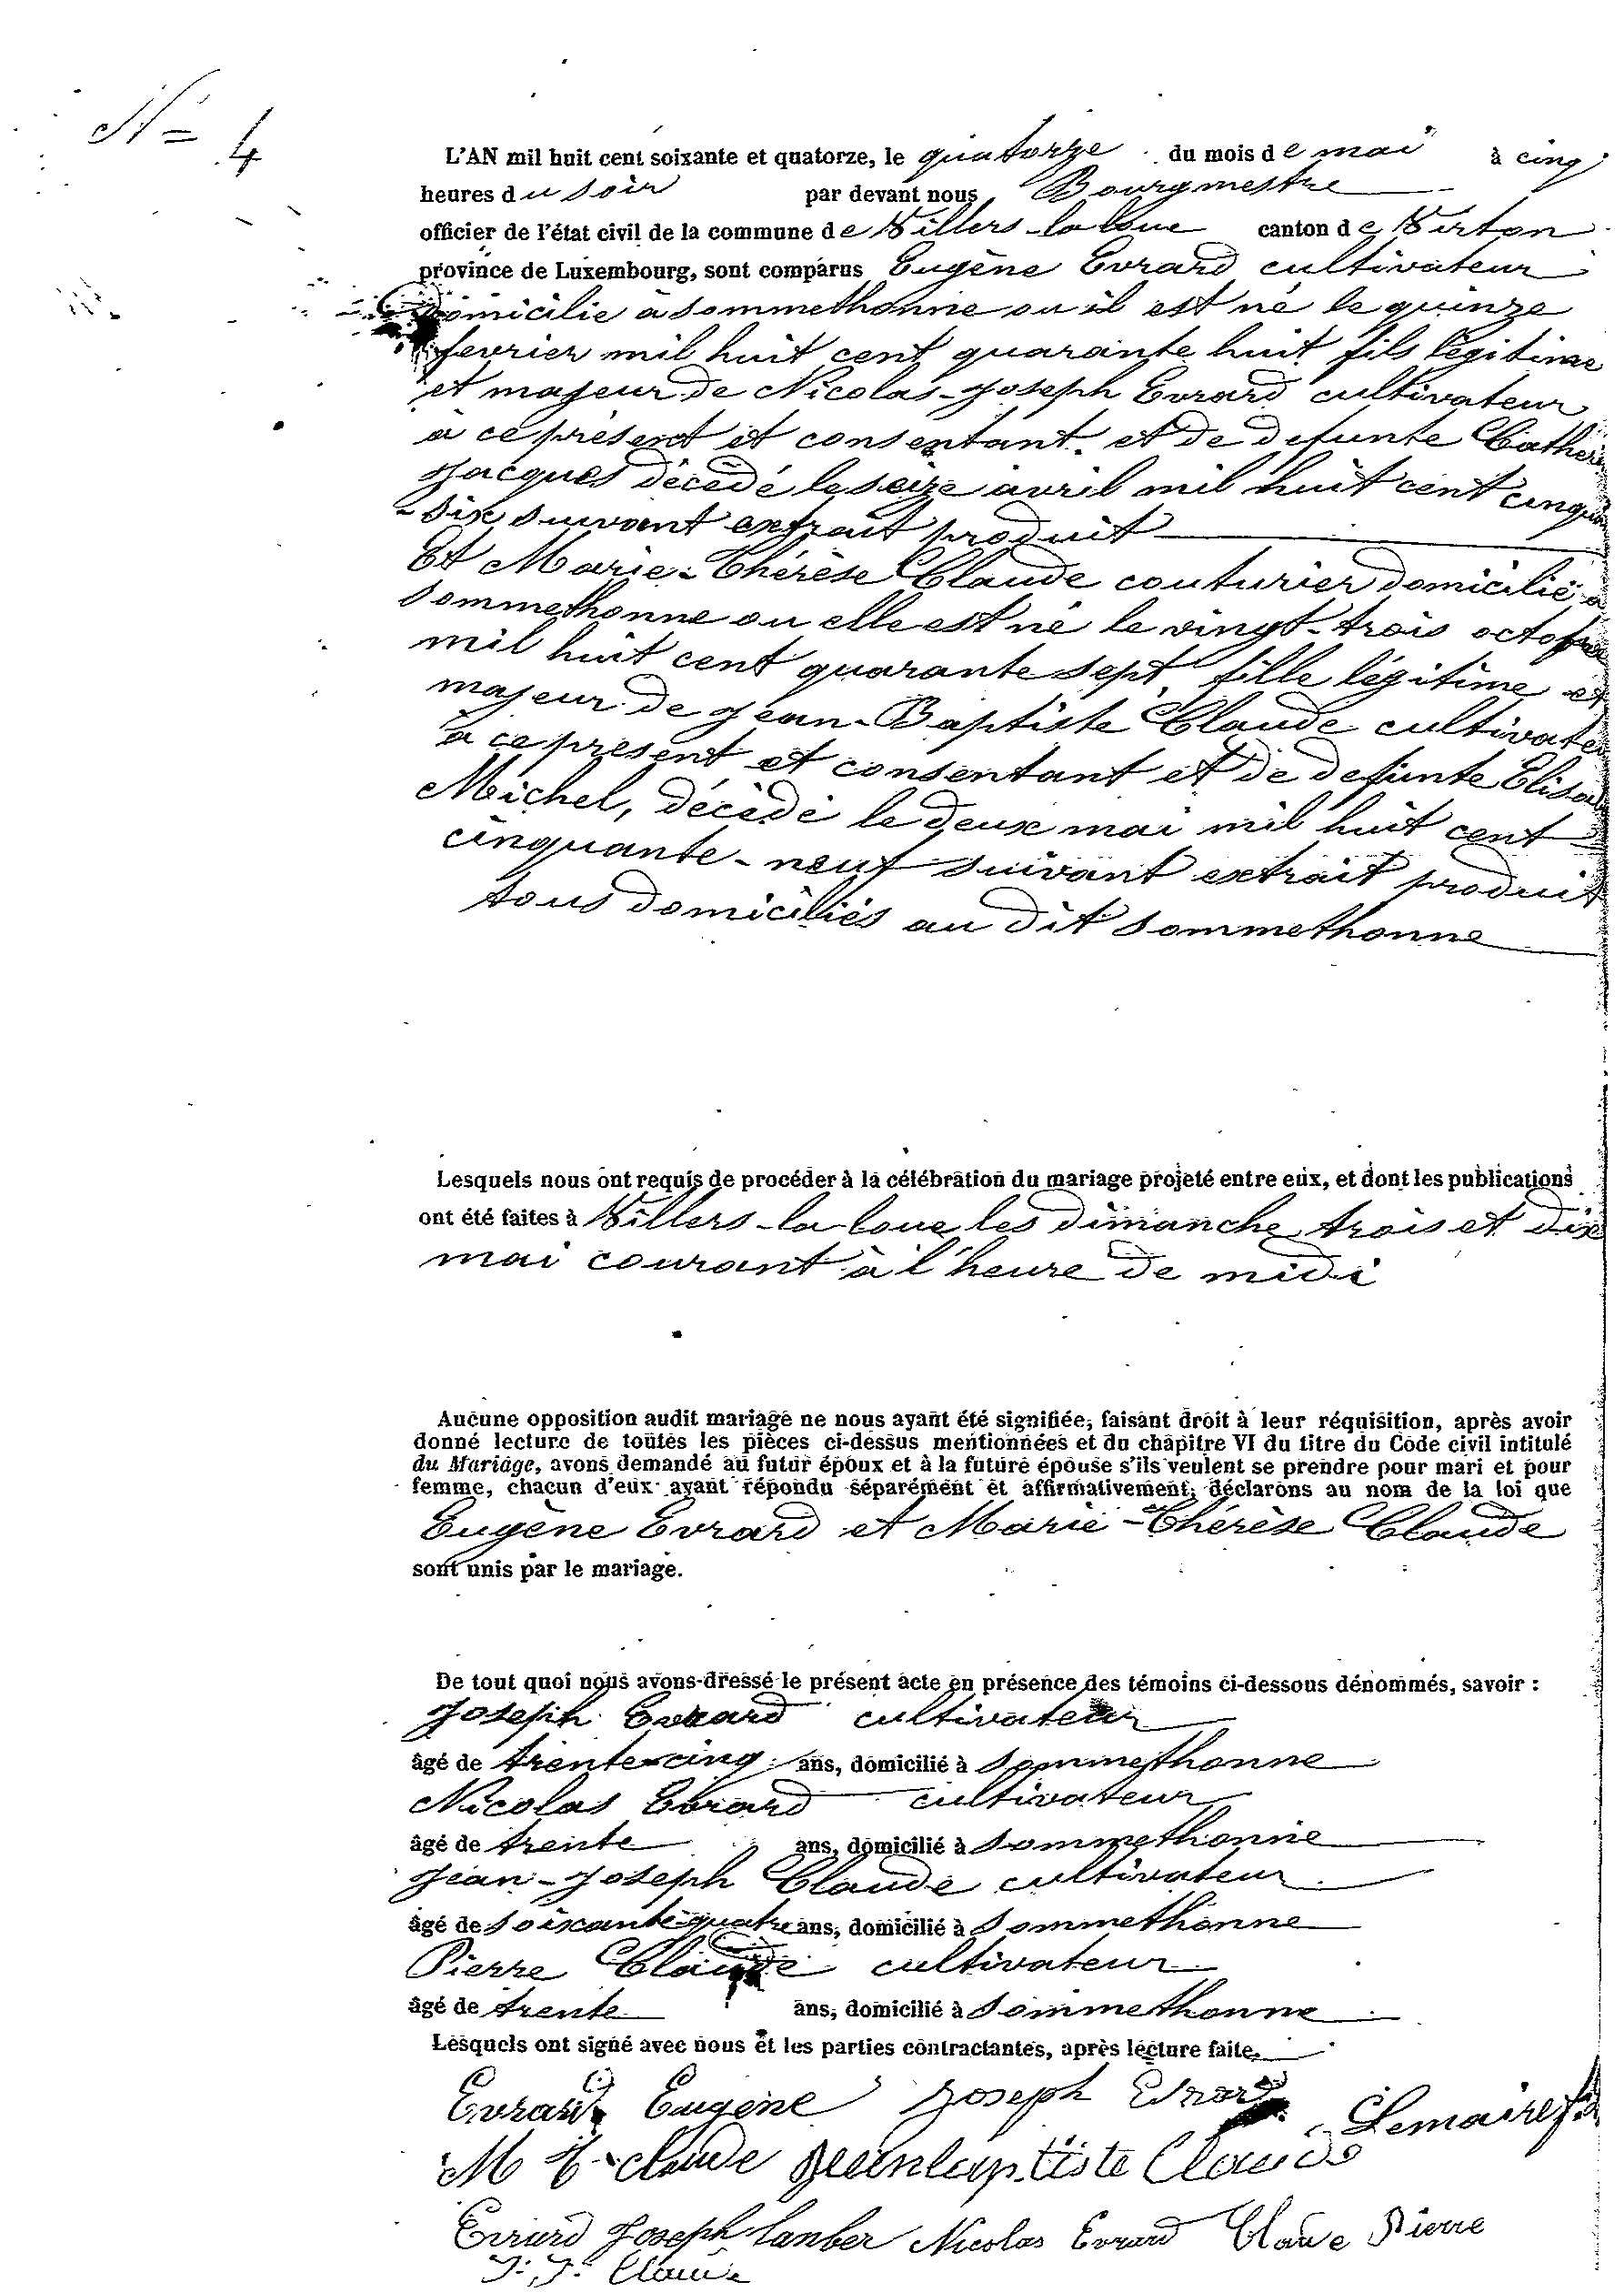 N= 4
L'AN mil huit cent soixante et quatorze, le quatorze du mois de mai à cinq
heures du soir par devant nous Bourgmestre
officier de l'état civil de la commune de Villers-la-loue canton de Virton
province de Luxembourg, sont comparus Eugène Evrard cultivateur
domicilié à sommethonne ou il est né le quinze
fevrier mil huit cent quarante huit fils légitime
et majeur de Nicolas-Joseph Evrard cultivateur
à ce présent et consentant et de defunte Catheri
Jacques décédé le seize avril mil huit cent cinquan
-six suivant extrait produit
Et Marie-Thérèse Claude couturier domicilié à
Sommethonne ou elle est né le vingt-trois octobre
mil huit cent quarante sept, fille légitime et
majeur de Jean-Baptiste Claude cultivateu
à ce présent et consentant et de defunte Elisa
Michel, décédé le deux mai mil huit cent
cinquante-neuf suivant extrait produit
tous domiciliés au dit sommethonne
Lesquels nous ont requis de procéder à la célébration du mariage projeté entre eux, et dont les publications
ont été faites à Villers-la-loue les dimanche trois et dix
mai courant à l'heure de midi
Aucune opposition audit mariage ne nous ayant été signifiée, faisant droit à leur réquisition, après avoir
donné lecture de toutes les pièces ci-dessus mentionnées et du chapitre VI du titre du Code civil intitulé
du Mariage, avons demandé au futur époux et à la future épouse s'ils veulent se prendre pour mari et pour
femme, chacun d'eux ayant répondu séparément et affirmativement, déclarons au nom de la loi que
Eugène Evrard et Marie-Thérèse Claude
sont unis par le mariage.
De tout quoi nous avons dressé le présent acte en présence des témoins ci-dessous dénommés, savoir :
Joseph Evrard cultivateur
âgé de trente-cinq ans, domicilié à Sommethonne
Nicolas Evrard cultivateur
âgé de trente ans, domicilié à Sommethonne
Jean-Joseph Claude cultivateur
âgé de soixante-quatre ans, domicilié à Sommethonne
Pierre Claude cultivateur
âgé de trente ans, domicilié à Sommethonne
Lesquels ont signé avec nous et les parties contractantes, après lecture faite.
Evrard Eugène Joseph Evrard
Lemaire
M T Claude Jeanbaptiste Claude
Evrard Joseph Lanber Nicolas Evrard Claude Pierre
J. J. Claude